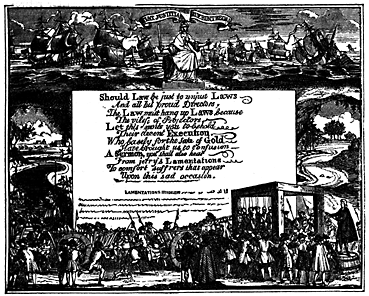 Should Law be just to unjust Laws
And all his proud Directors,
The Law must hang up Laws because
The vilest of Projectors
Let this invite you to behold
Their decent Execution
Who basely for the sake of Gold
Have brought us to confusion
A Sermon, you shall also hear
From Jerry's Lamentations
To comfort Suff'rers that appear
Upon this sad occasion.
LAMENTATIONS